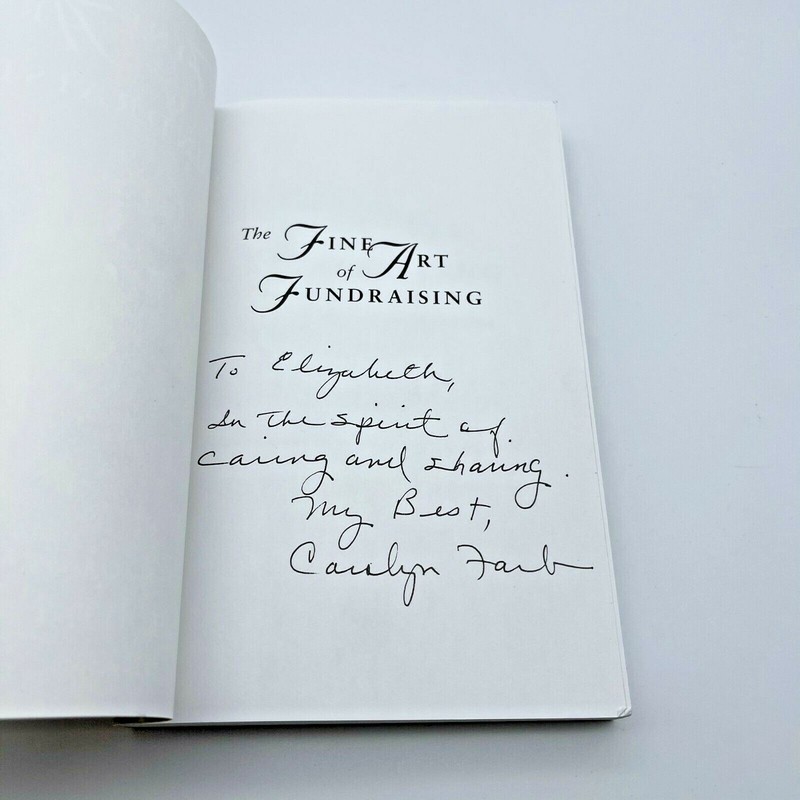 The FINE ART
of
FUNDRAISING
To Elizabeth,
In the spirit of
caring and sharing.
My Best,
Carolyn Farb